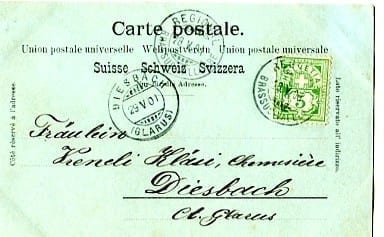 Carte postale.
Union postale universelle Weltpostverein Unione postale universale
Suisse Schweiz Svizzera
Nur für die Adresse.
Côté réservé à l'adresse.
Lato riservato all' indirizzo.
DIESBACH
29 V 01
(GLARUS)
REGION
HELVETIA
5
Fräulein
Vreneli Kläsi, Commisière
Diesbach
Ct. Glarus